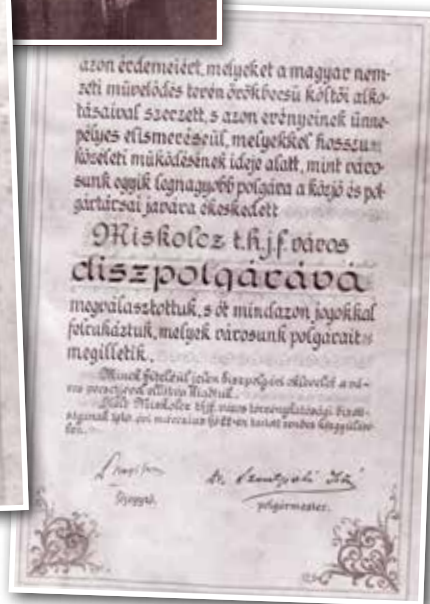 azon érdemeiért, melyeket a magyar nem-
zeti művelődés terén örökbecsű költői alko-
tásaival szerzett, s azon erényeinek ünne-
pélyes elismeréséül, melyekkel hosszu
közéleti működésének ideje alatt, mint váro-
sunk egyik legnagyobb polgára a közjó és pol-
gártársai javára ékeskedett
Miskolcz thjf város
diszpolgárává
megválasztottuk, s őt mindazon jogokkal
felruháztuk, melyek városunk polgárait
megilletik.
Minek hiteléül jelen diszpolgári oklevelet a vá-
ros pecsétjével ellátva kiadtuk.
Kelt Miskolcz thjf. város törvényhatósági bizott-
ságának évi március hó tartott rendes közgyűlésé-
ben.
Dr. Szentpáli
főjegyző. polgármester.